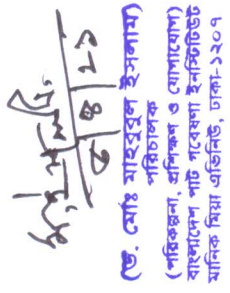 (ড. মোঃ মাহবুবুল ইসলাম)
পরিচালক
(পরিকল্পনা, প্রশিক্ষণ ও যোগাযোগ)
বাংলাদেশ পাট গবেষণা ইনস্টিটিউট
মানিক মিয়া এভিনিউ, ঢাকা-১২০৭